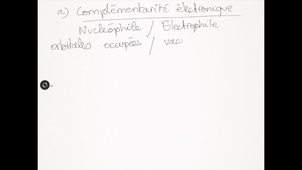 a) Complémentarité électronique
Nucléophile / Electrophile
orbitales occupées / vac